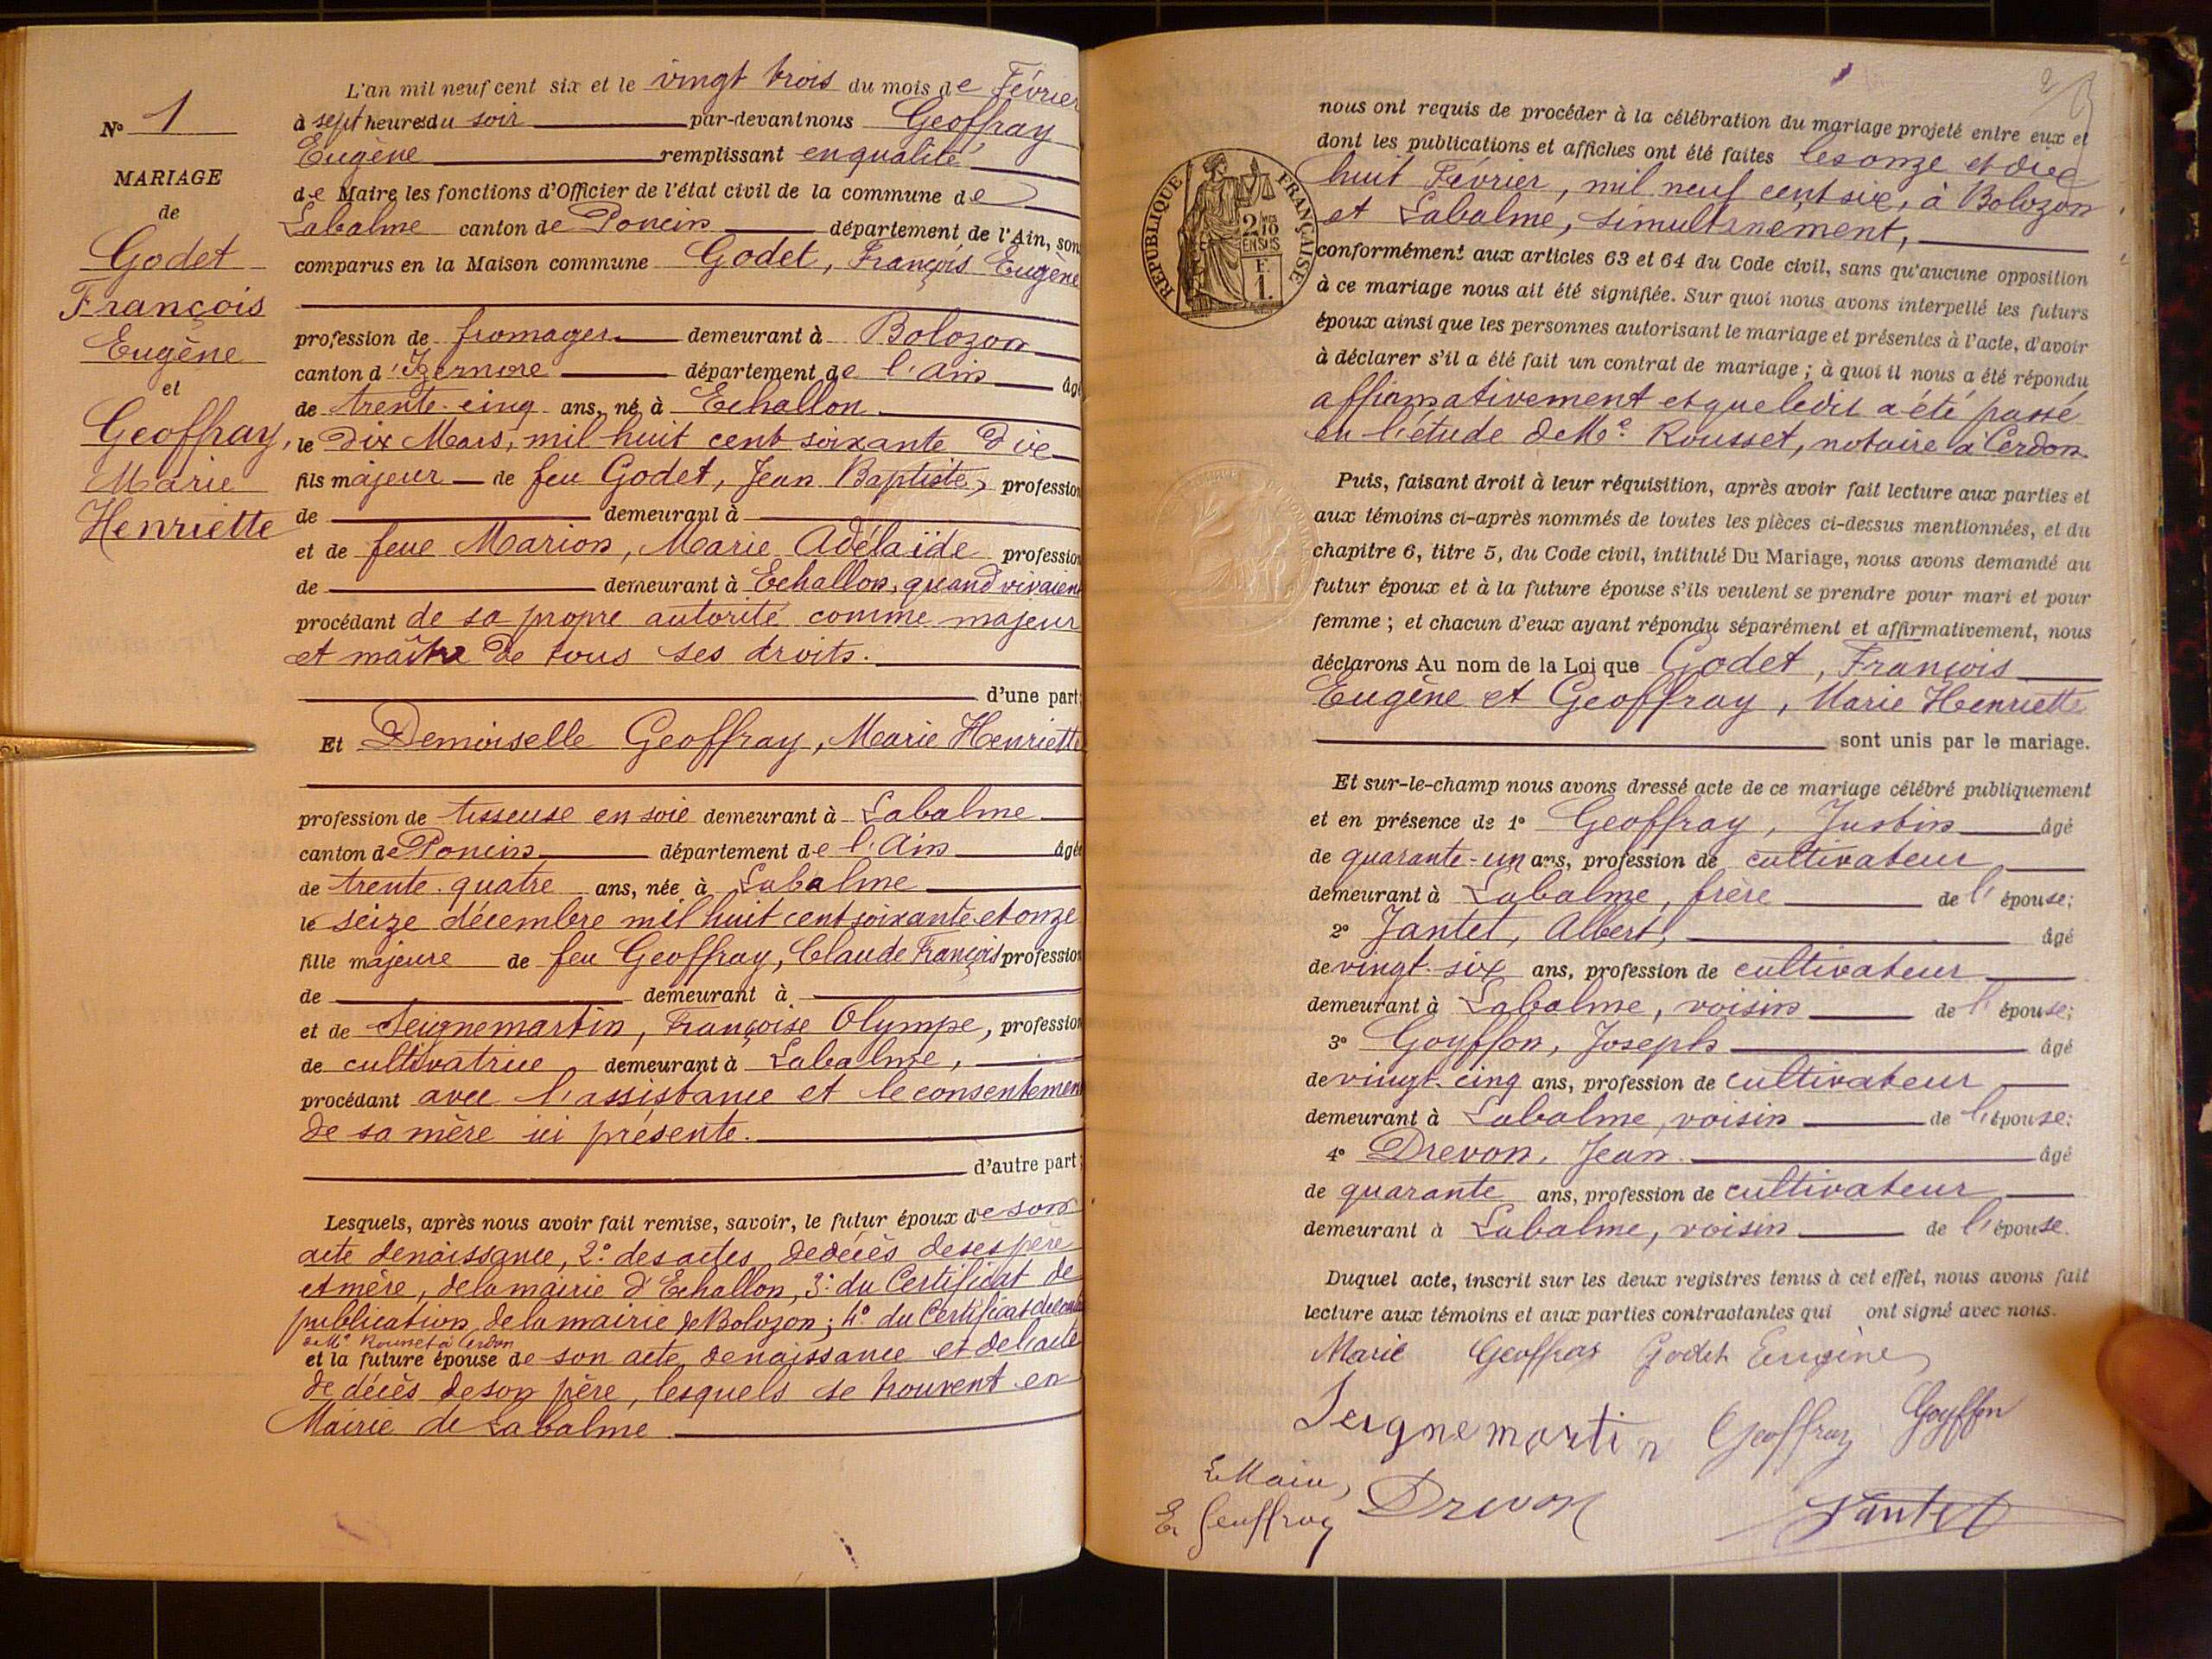 N° 1
MARIAGE
de
Godet
François
Eugène
et
Geoffray,
Marie
Henriette
L'an mil neuf cent six et le vingt trois du mois de Février
à sept heures du soir par-devant nous Geoffray
Eugène remplissant en qualité
de Maire les fonctions d'Officier de l'état civil de la commune de
Labalme canton de Poncin département de l'Ain, son
comparus en la Maison commune Godet, François Eugène
profession de fromager demeurant à Bolozon
canton d'Izernore département de l'Ain âgé
de trente-cinq ans, né à Echallon
le Dix Mars, mil huit cent soixante Dix
fils majeur de feu Godet, Jean Baptiste, profession
de demeurant à
et de feue Marion, Marie Adélaïde profession
de demeurant à Echallon, quand vivaient
procédant de sa propre autorité comme majeur
et maître de tous ses droits.
d'une part;
Et Demoiselle Geoffray, Marie Henriette
profession de tisseuse en soie demeurant à Labalme
canton de Poncin département de l'Ain âgée
de trente-quatre ans, née à Labalme
le seize décembre mil huit cent soixante et onze
fille majeure de feu Geoffray, Claude François profession
de demeurant à
et de Seignemartin, Françoise Olympe, profession
de cultivatrice demeurant à Labalme,
procédant avec l'assistance et le consentement
de sa mère ici présente.
d'autre part;
Lesquels, après nous avoir fait remise, savoir, le futur époux de son
acte de naissance, 2° des actes de décès de ses père
et mère, de la mairie d'Echallon, 3° du Certificat de
publication de la mairie de Bolozon; 4° du Certificat de
de Me Rousset à Cerdon
et la future épouse de son acte de naissance et de l'acte
de décès de son père, lesquels se trouvent en
Mairie de Labalme
2
RÉPUBLIQUE FRANÇAISE
2/10
EN SUS
F.
1.
nous ont requis de procéder à la célébration du mariage projeté entre eux et
dont les publications et affiches ont été faites les onze et dix
huit Février, mil neuf cent six, à Bolozon
et Labalme, simultanement,
conformément aux articles 63 et 64 du Code civil, sans qu'aucune opposition
à ce mariage nous ait été signifiée. Sur quoi nous avons interpellé les futurs
époux ainsi que les personnes autorisant le mariage et présentes à l'acte, d'avoir
à déclarer s'il a été fait un contrat de mariage; à quoi il nous a été répondu
affirmativement et que ledit a été passé
en l'étude de Me Rousset, notaire à Cerdon
Puis, faisant droit à leur réquisition, après avoir fait lecture aux parties et
aux témoins ci-après nommés de toutes les pièces ci-dessus mentionnées, et du
chapitre 6, titre 5, du Code civil, intitulé Du Mariage, nous avons demandé au
futur époux et à la future épouse s'ils veulent se prendre pour mari et pour
femme; et chacun d'eux ayant répondu séparément et affirmativement, nous
déclarons Au nom de la Loi que Godet, François
Eugène et Geoffray, Marie Henriette
sont unis par le mariage.
Et sur-le-champ nous avons dressé acte de ce mariage célébré publiquement
et en présence de 1° Geoffray, Justin âgé
de quarante-un ans, profession de cultivateur
demeurant à Labalme, frère de l'épouse;
2° Jantet, Albert, âgé
de vingt-six ans, profession de cultivateur
demeurant à Labalme, voisin de l'épouse;
3° Goyffon, Joseph âgé
de vingt-cinq ans, profession de cultivateur
demeurant à Labalme, voisin de l'épouse;
4° Drevon, Jean. âgé
de quarante ans, profession de cultivateur
demeurant à Labalme, voisin de l'épouse.
Duquel acte, inscrit sur les deux registres tenus à cet effet, nous avons fait
lecture aux témoins et aux parties contractantes qui ont signé avec nous.
Marie Geoffray Godet Eugène
Seignemartin Geoffray Goyffon
Le Maire,
E. Geoffray Drevon Jantet